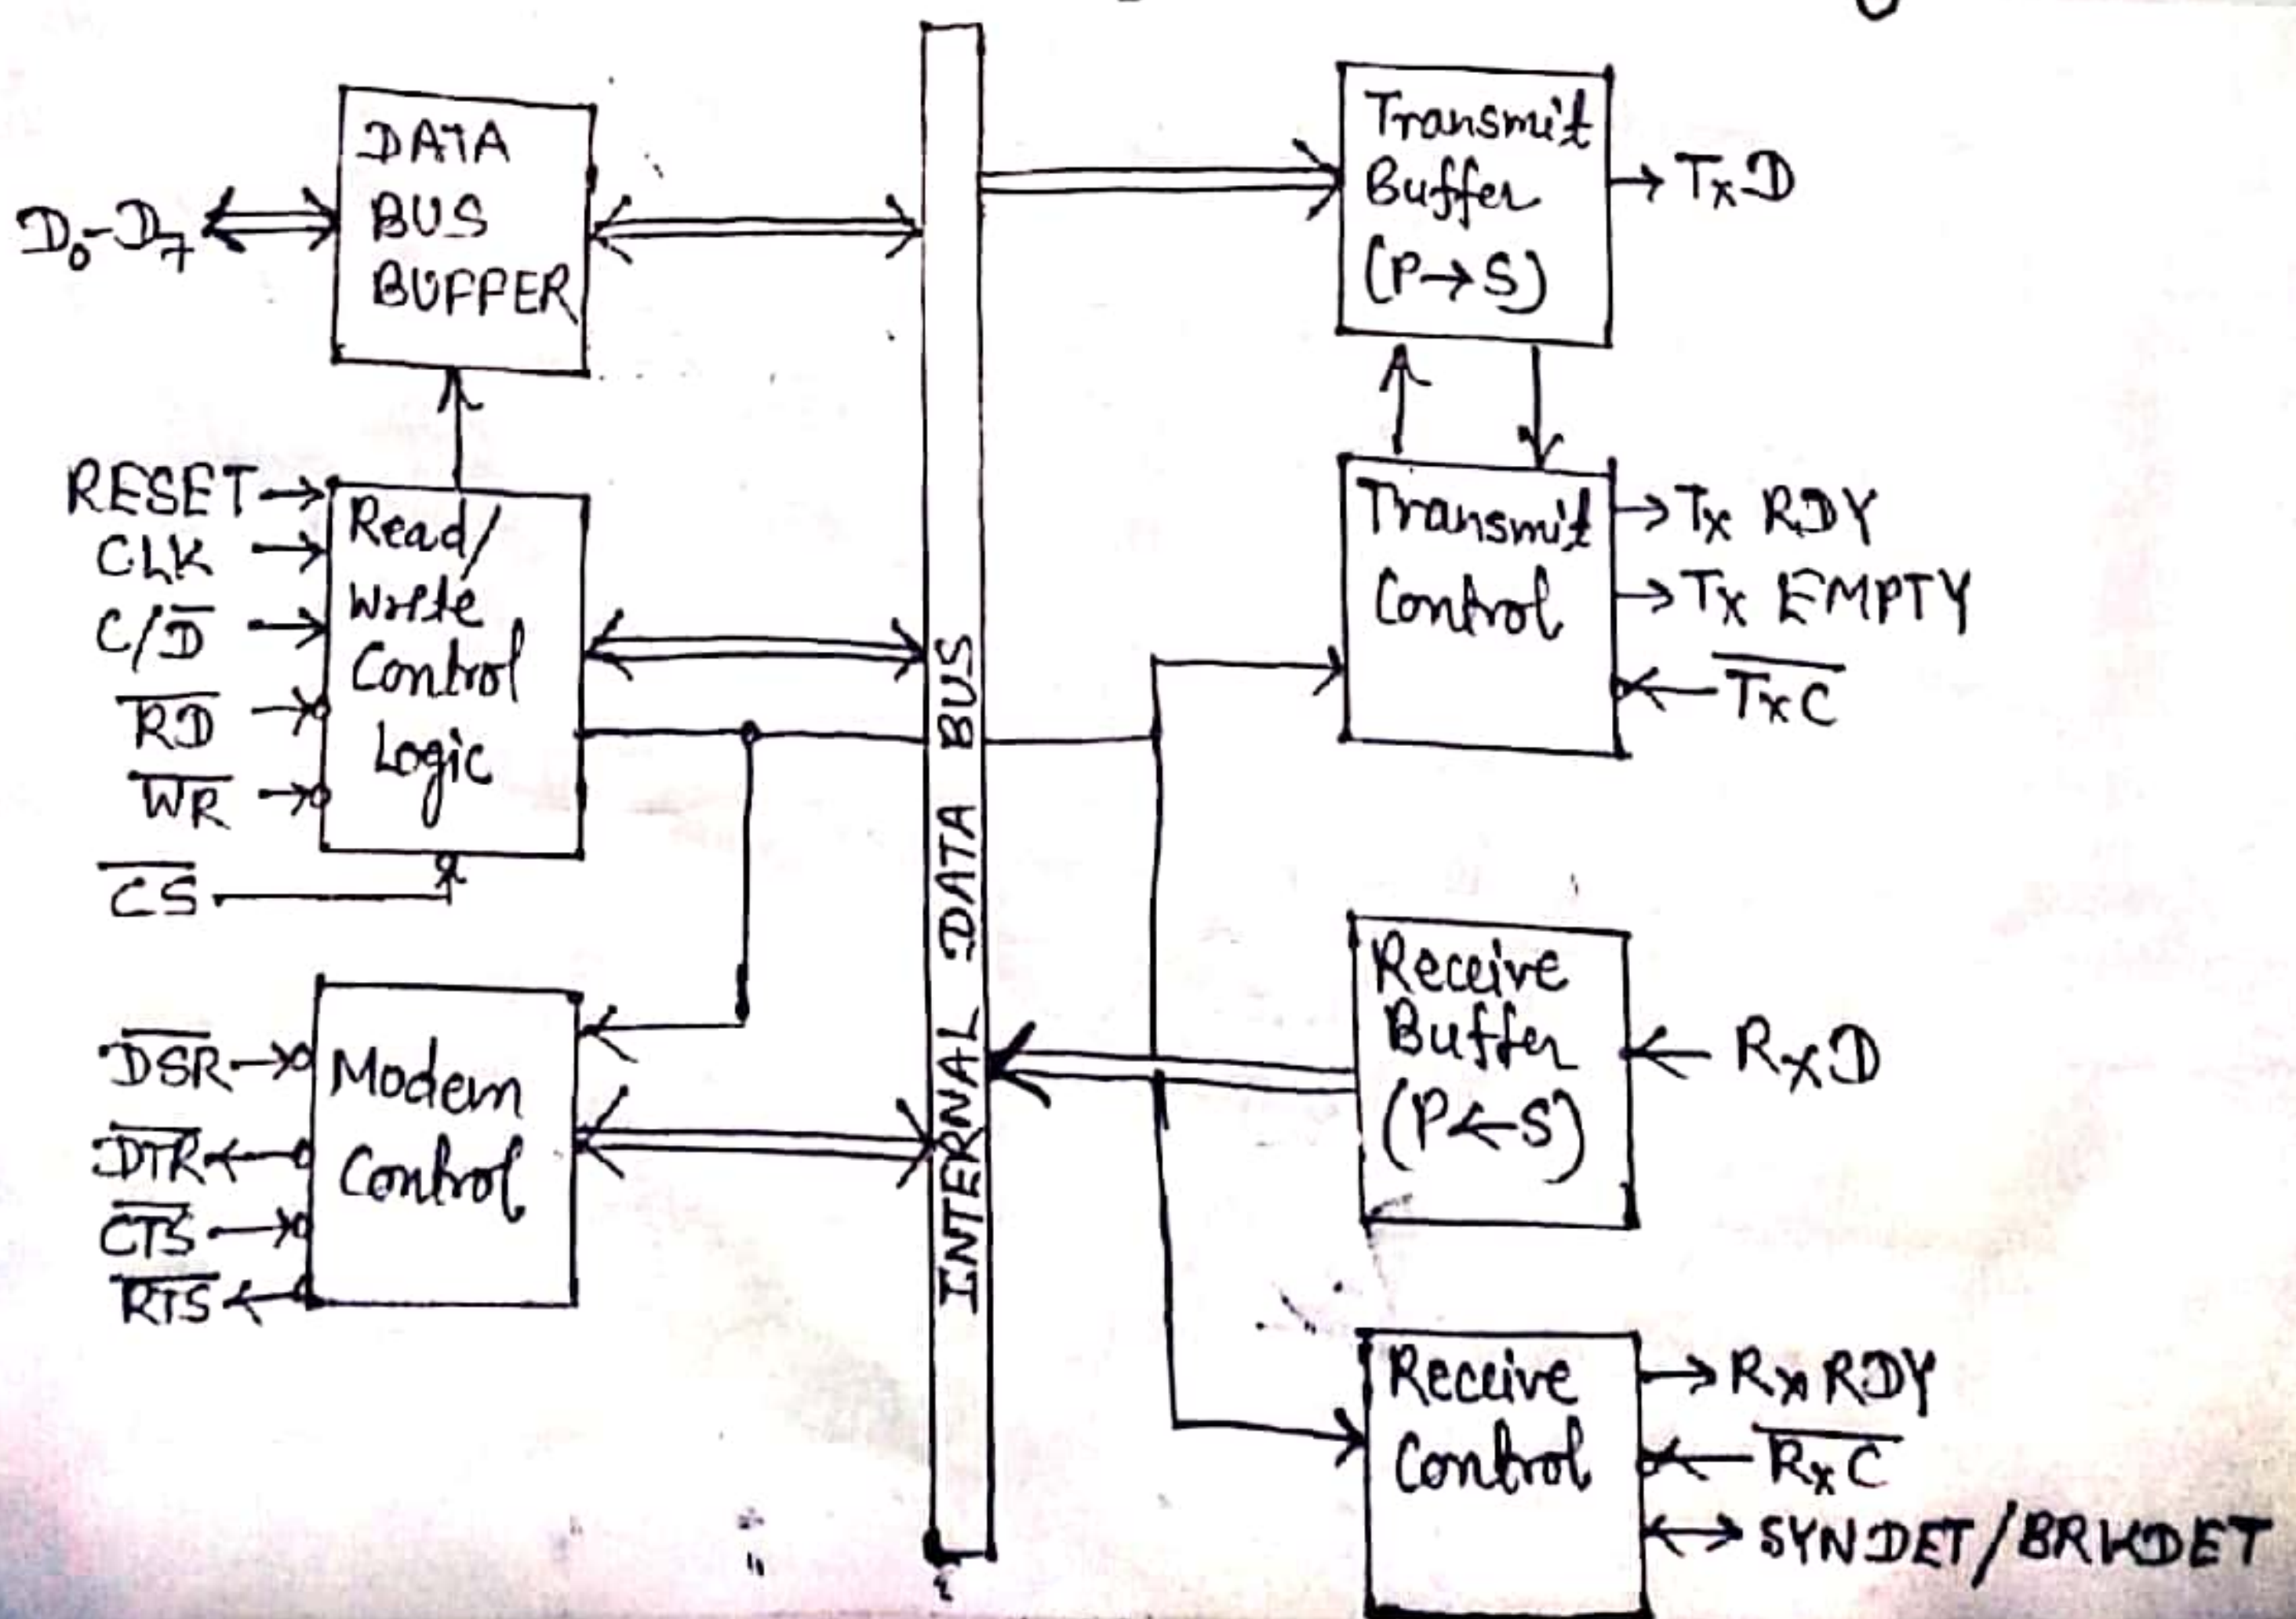 DATA
BUS
BUFFER
D₀-D₇
RESET
CLK
C/D̅
R̅D̅
W̅R̅
C̅S̅
Read/
Write
Control
Logic
D̅S̅R̅
D̅T̅R̅
C̅T̅S̅
R̅T̅S̅
Modem
Control
INTERNAL DATA BUS
Transmit
Buffer
(P→S)
TxD
Transmit
Control
Tx RDY
Tx EMPTY
T̅x̅C̅
Receive
Buffer
(P←S)
RxD
Receive
Control
Rx RDY
R̅x̅C̅
SYNDET/BRKDET